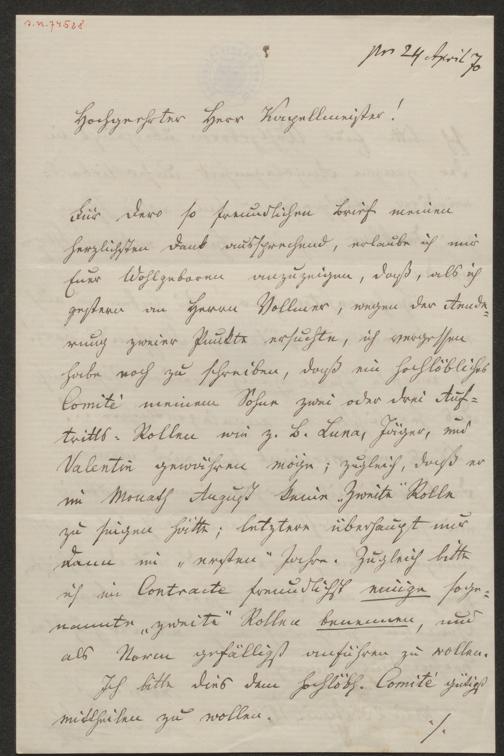 J.N. 74528
24 April 70
Hochgeehrter Herr Kapellmeister!
Für dero so freundlichen Brief meinen
herzlichsten Dank aussprechend, erlaube ich mir
Euer Wohlgeboren anzuzeigen, daß, als ich
gestern an Herrn Vollmer, wegen der Aende-
rung zweier Punkte ersuchte, ich vergessen
habe noch zu schreiben, daß ein hochlöbliches
Comité meinem Sohne zwei oder drei Auf-
tritts-Rollen wie z. B. Luna, Jäger, und
Valentin gewähren möge; zugleich, daß er
im Monath August keine "Zweite" Rolle
zu singen hätte; letztere überhaupt nur
dann im "ersten" Jahre. Zugleich bitte
ich im Contracte freundlichst einige soge-
nannte "zweite" Rollen benennen, und
als Norm gefälligst anführen zu wollen.
Ich bitte dies dem hochlöbl. Comité gütigst
mittheilen zu wollen.
./.